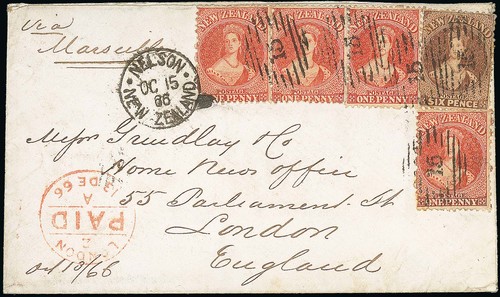 via
Marseille
NELSON
OC 15
66
NEW ZEALAND
NEW ZEALAND
POSTAGE
ONE PENNY
NEW ZEALAND
POSTAGE
ONE PENNY
15
NEW ZEALAND
POSTAGE
ONE PENNY
15
NEW ZEALAND
POSTAGE
SIX PENCE
15
NEW ZEALAND
POSTAGE
ONE PENNY
15
Messrs Grindlay & Co
Home News office
55 Parliament St
London
England
LONDON
Z
PAID
A
13 DE 66
Oct 13/66